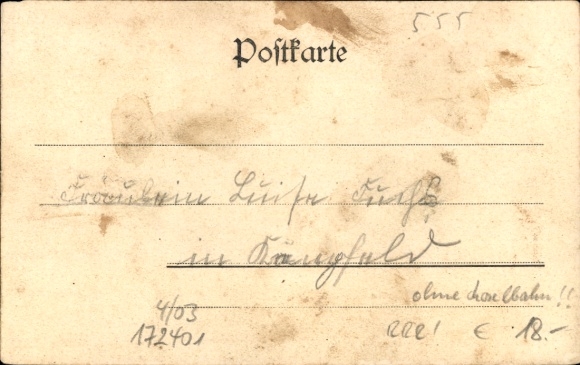 555
Postkarte
Fräulein Luise Fuchs
in
ohne Moselbahn!!
4/03
172401
RRR! € 18.-